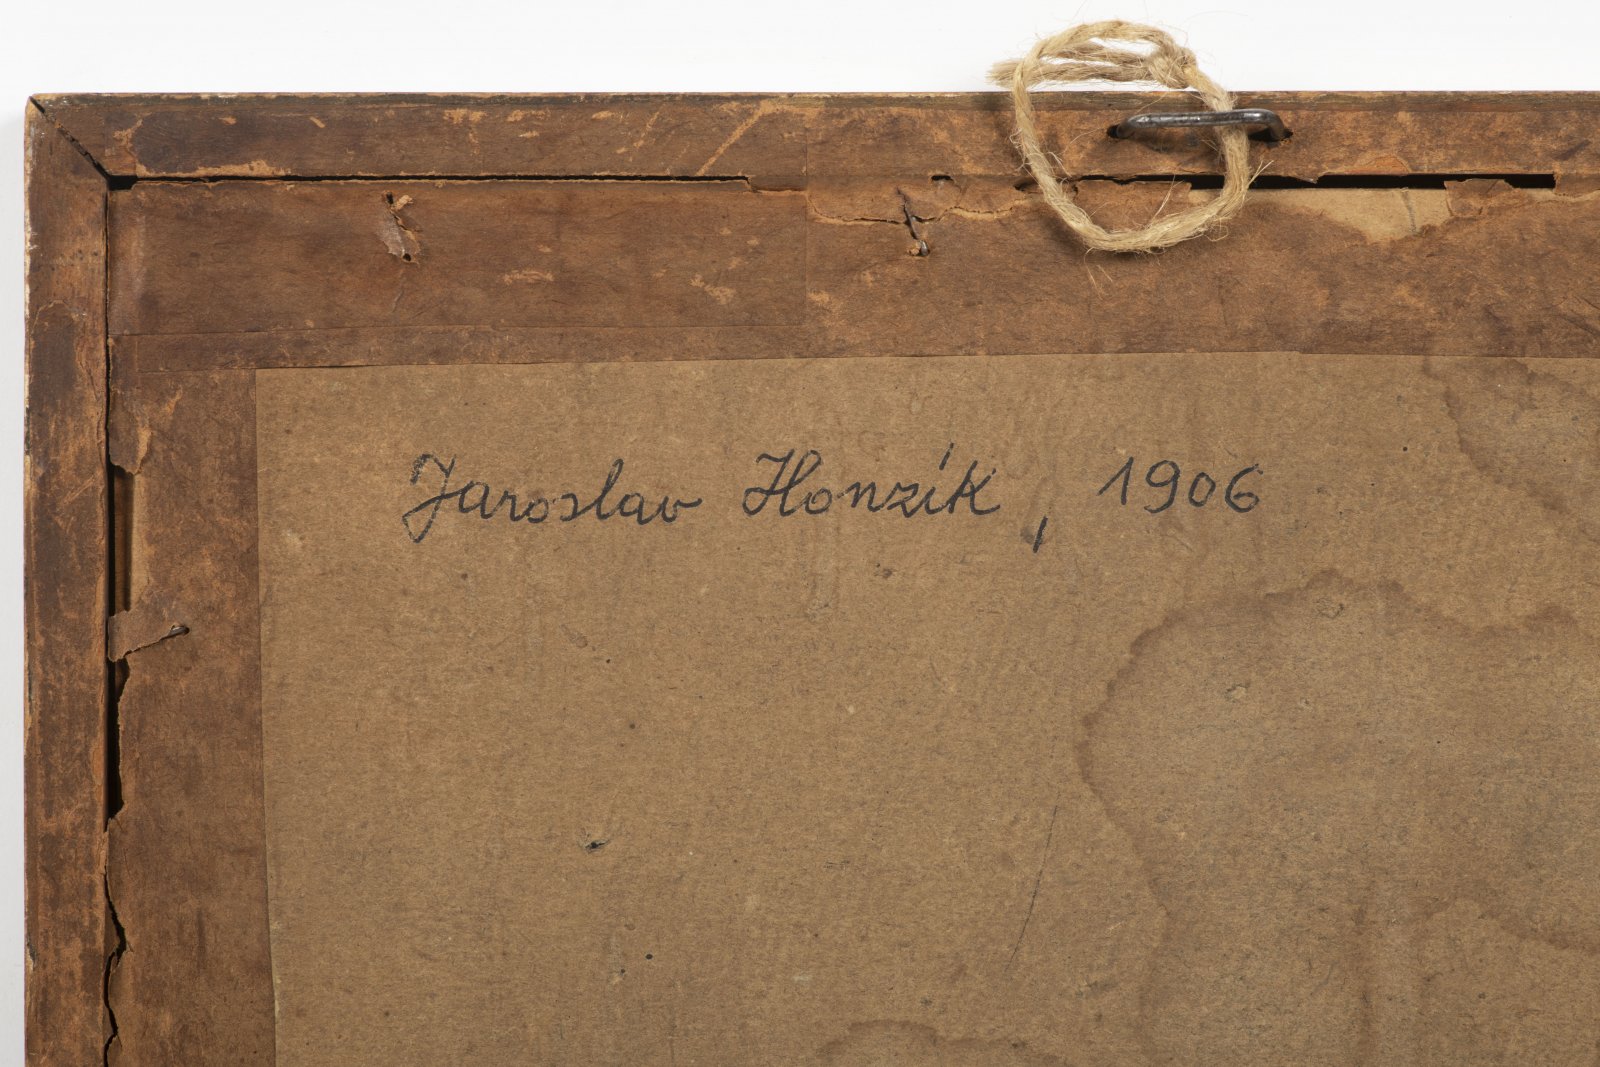 Jaroslav Honzík, 1906